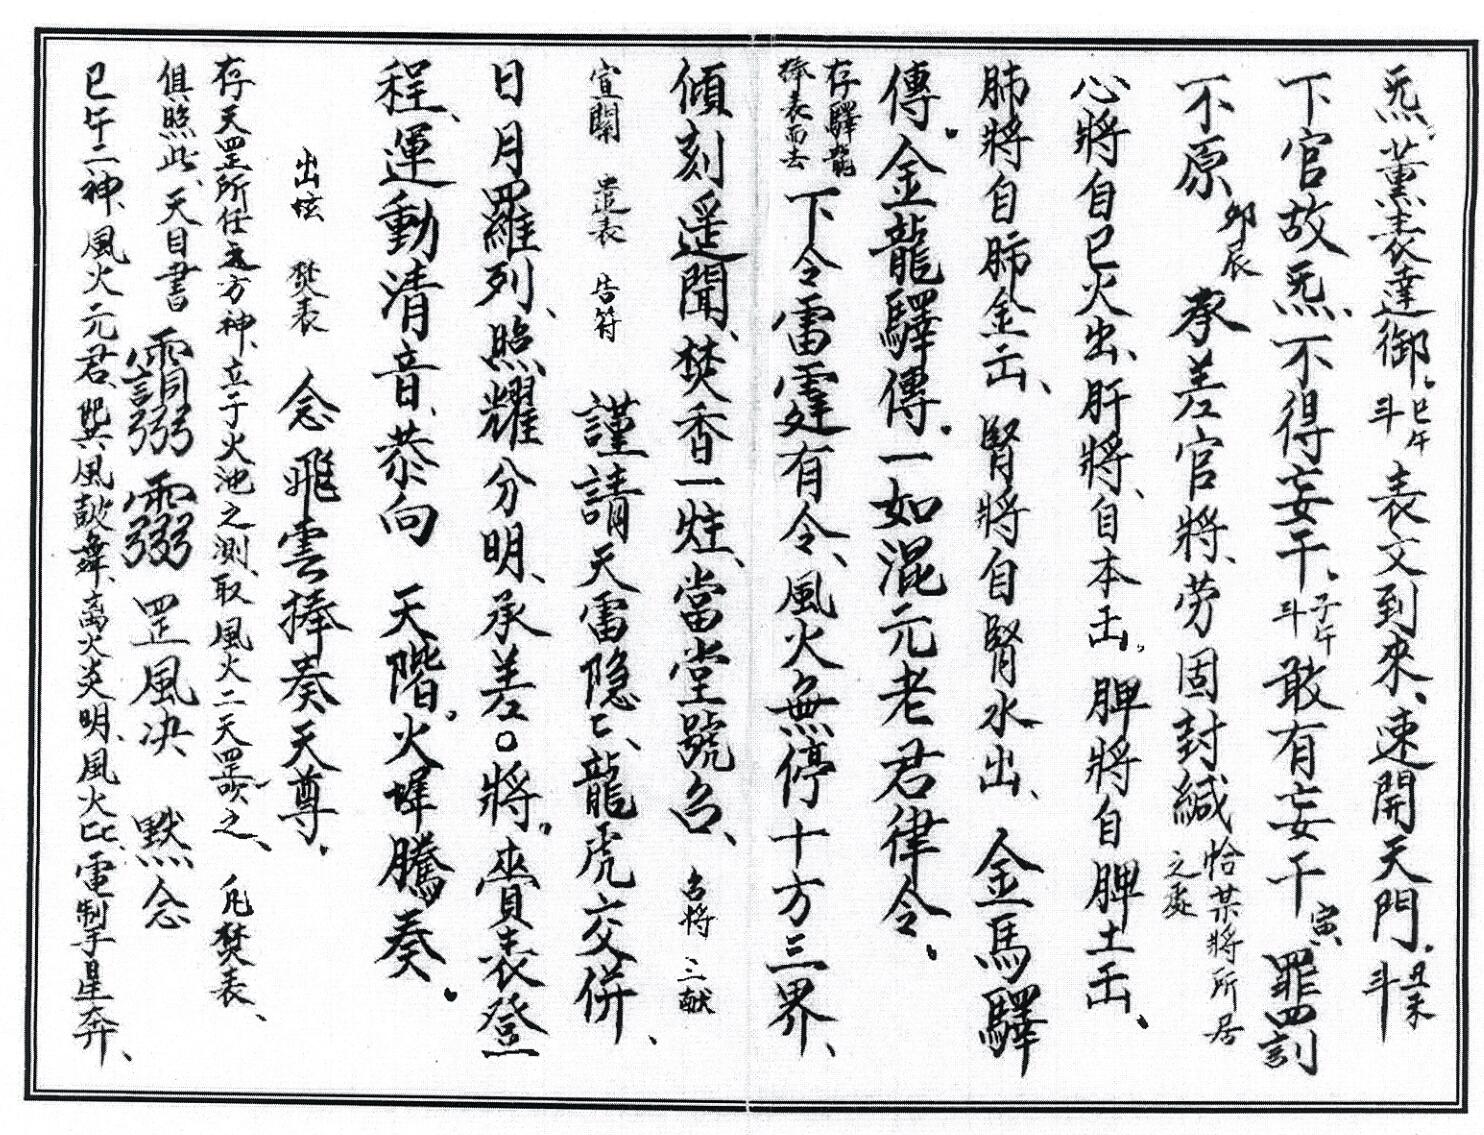 炁、薰表達御。巳午斗表文到來、速開天門。丑未斗
下官故炁、不得妄干。子午斗敢有妄干寅罪罰
不原卯辰承差官將、劳固封緘恰某將所居之處
心將自巳火出、肝將、自本出。脾將自脾土出、
肺將自肺金出、腎將自腎水出、金馬驛
傳。金龍驛傳。一如混元老君律令、
存驛龍捧表而去下令雷霆有令、風火無停十方三界、
傾刻遥聞、焚香一炷、當堂號召、召將三献
宣關遣表告符謹請天雷隐匕、龍虎交併、
日月羅列、照耀分明、承差○將。賫表登
程、運動清音、恭向天階。火壆騰奏。
出壇焚表念飛雲捧奏天尊、
存天罡所任之方神、立于火池之測、取風火二天罡吹之、凡焚表、
俱照此、天目書罡风决默念
巳午二神、風火元君、巽風鼓舞、离火炎明、風火匕匕、電掣星奔、